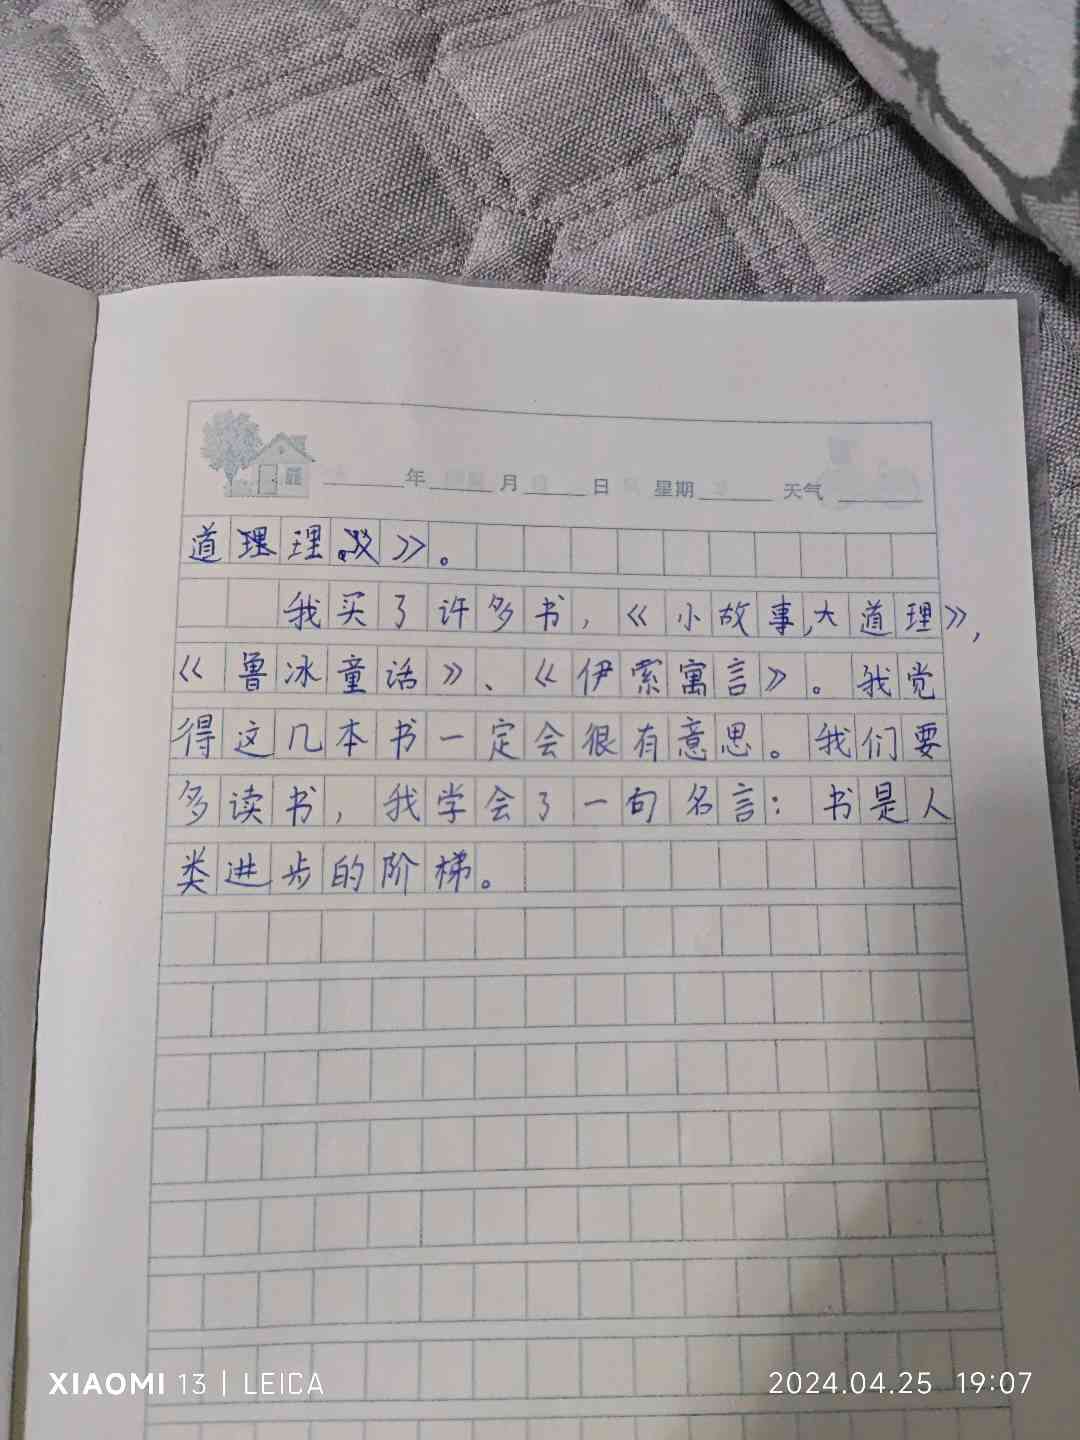 年 月 日 星期 天气
道理理》。
我买了许多书,《小故事大道理》,
《鲁冰童话》、《伊索寓言》。我觉
得这几本书一定会很有意思。我们要
多读书,我学会了一句名言:书是人
类进步的阶梯。
XIAOMI 13 | LEICA
2024.04.25 19:07